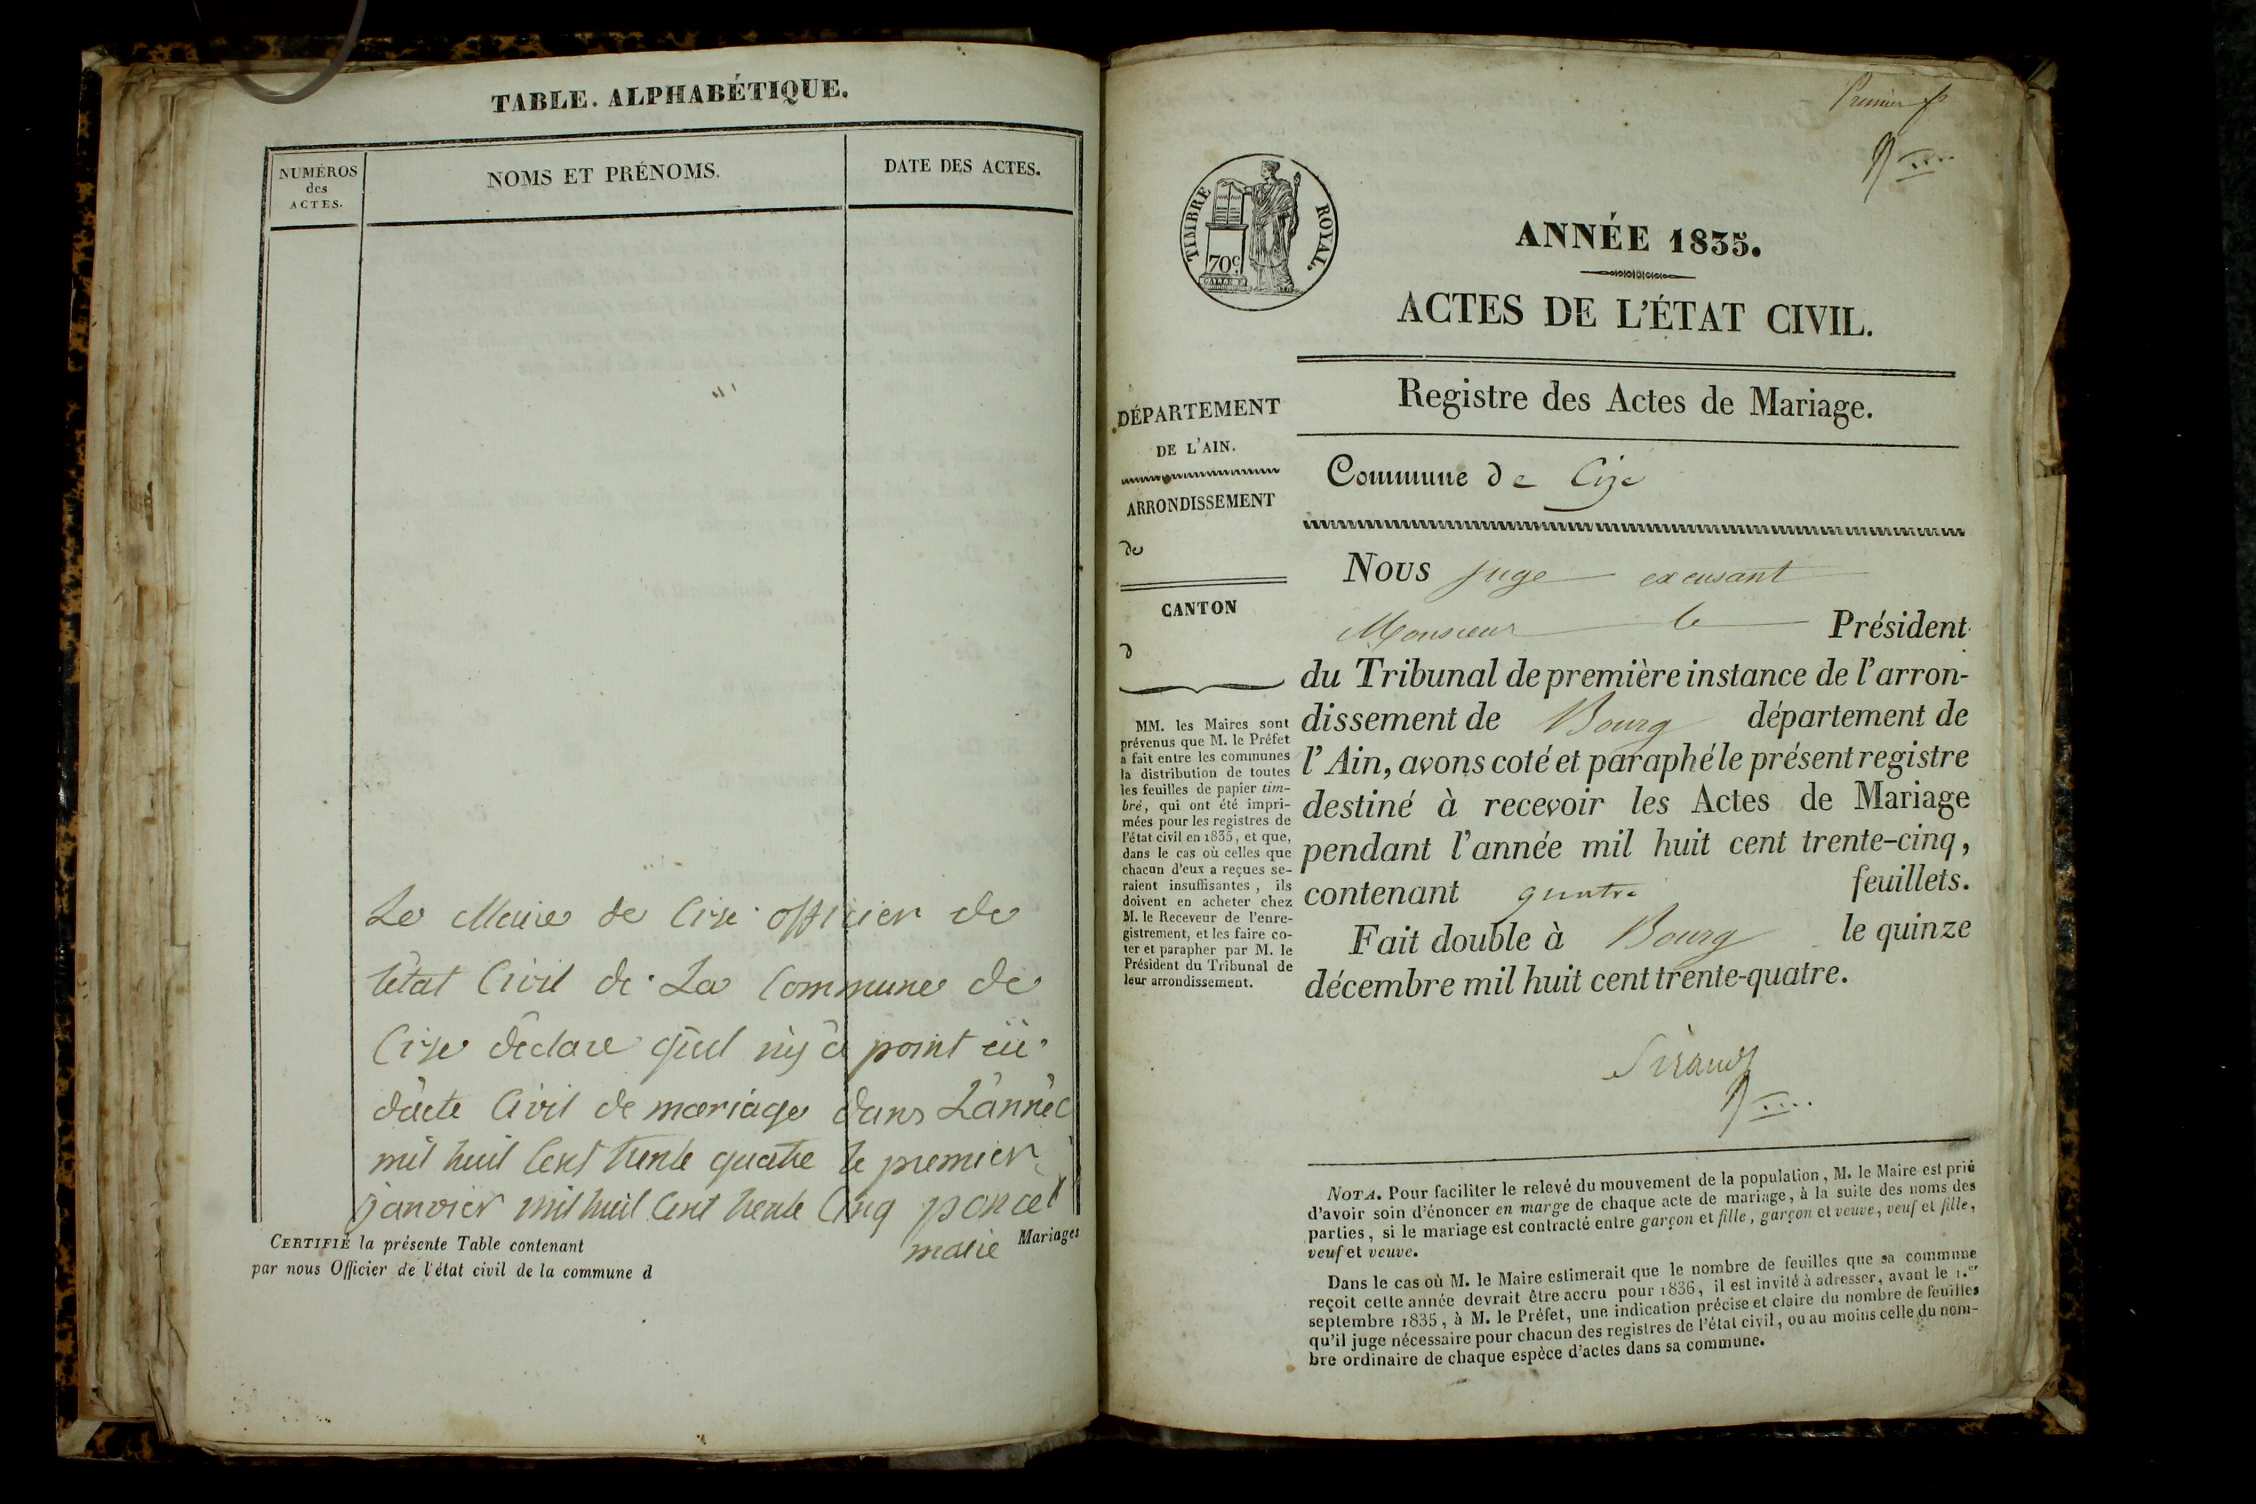 TABLE. ALPHABÉTIQUE.
NUMÉROS
des
ACTES.
NOMS ET PRÉNOMS.
DATE DES ACTES.
Le Maire de Cize officier de
l'état Civil de La Commune de
Cize déclare qu'il n'y à point eü
d'acte Civil de mariage dans L'année
mil huit Cent trente quatre le premier
janvier mil huit Cent trente Cinq poncet
maire
CERTIFIÉ la présente Table contenant
Mariages
par nous Officier de l'état civil de la commune d
Premier
TIMBRE ROYAL.
70c.
ANNÉE 1835.
ACTES DE L'ÉTAT CIVIL.
Registre des Actes de Mariage.
DÉPARTEMENT
DE L'AIN.
ARRONDISSEMENT
de
CANTON
d
MM. les Maires sont
prévenus que M. le Préfet
a fait entre les communes
la distribution de toutes
les feuilles de papier tim-
bré, qui ont été impri-
mées pour les registres de
l'état civil en 1835, et que,
dans le cas où celles que
chacun d'eux a reçues se-
raient insuffisantes, ils
doivent en acheter chez
M. le Receveur de l'enre-
gistrement, et les faire co-
ter et parapher par M. le
Président du Tribunal de
leur arrondissement.
Commune de Cize
Nous juge excusant
Monsieur le Président
du Tribunal de première instance de l'arron-
dissement de Bourg département de
l'Ain, avons coté et paraphé le présent registre
destiné à recevoir les Actes de Mariage
pendant l'année mil huit cent trente-cinq,
contenant quatre feuillets.
Fait double à Bourg le quinze
décembre mil huit cent trente-quatre.
NOTA. Pour faciliter le relevé du mouvement de la population, M. le Maire est prié
d'avoir soin d'énoncer en marge de chaque acte de mariage, à la suite des noms des
parties, si le mariage est contracté entre garçon et fille, garçon et veuve, veuf et fille,
veuf et veuve.
Dans le cas où M. le Maire estimerait que le nombre de feuilles que sa commune
reçoit cette année devrait être accru pour 1836, il est invité à adresser, avant le 1.er
septembre 1835, à M. le Préfet, une indication précise et claire du nombre de feuilles
qu'il juge nécessaire pour chacun des registres de l'état civil, ou au moins celle du nom-
bre ordinaire de chaque espèce d'actes dans sa commune.